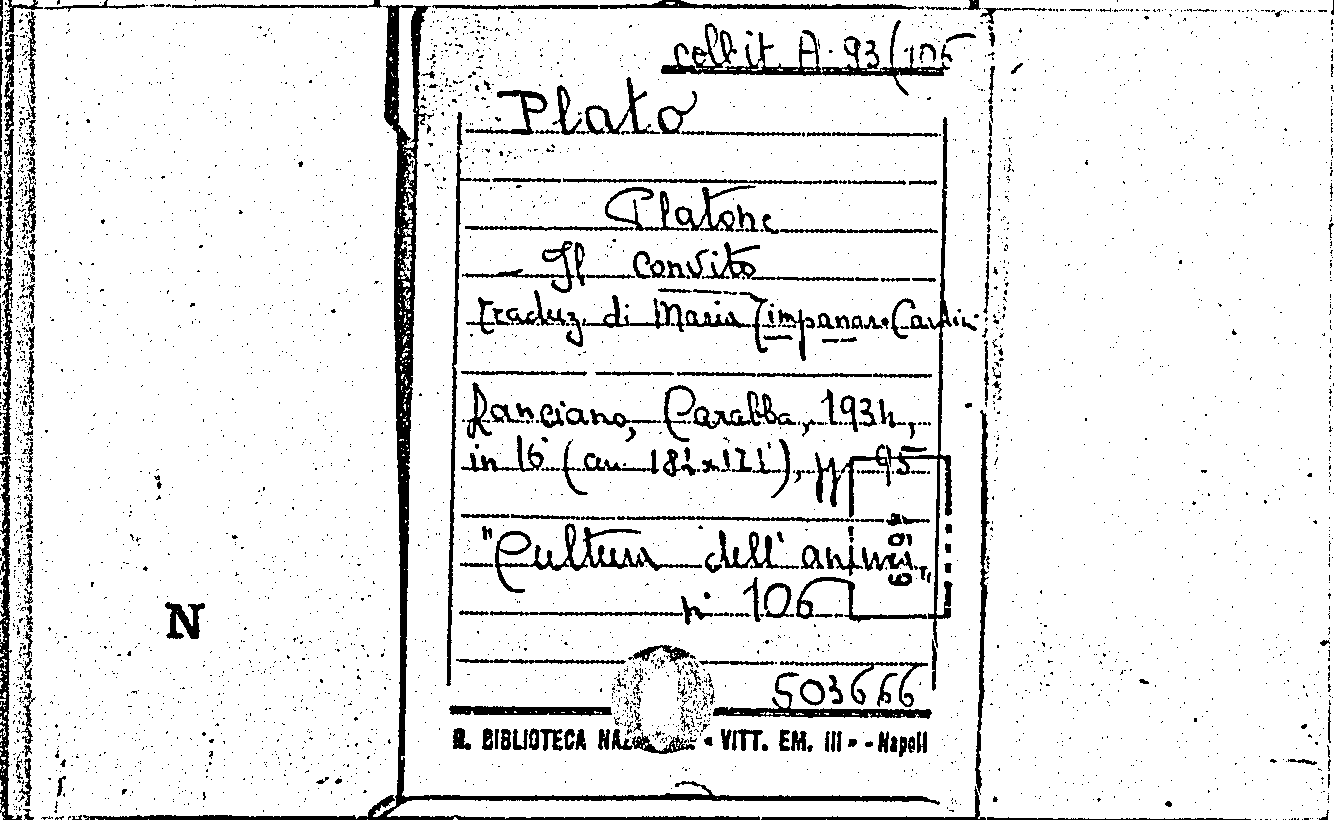 coll. it. A. 93/106
Plato
Platone
— Il Convito
traduz. di Maria Timpanaro Cardini
Lanciano, Carabba, 1934,
in 16° pp. 95
"Cultura dell'anima"
n° 106
503666
R. BIBLIOTECA « VITT. EM. III » - Napoli
N